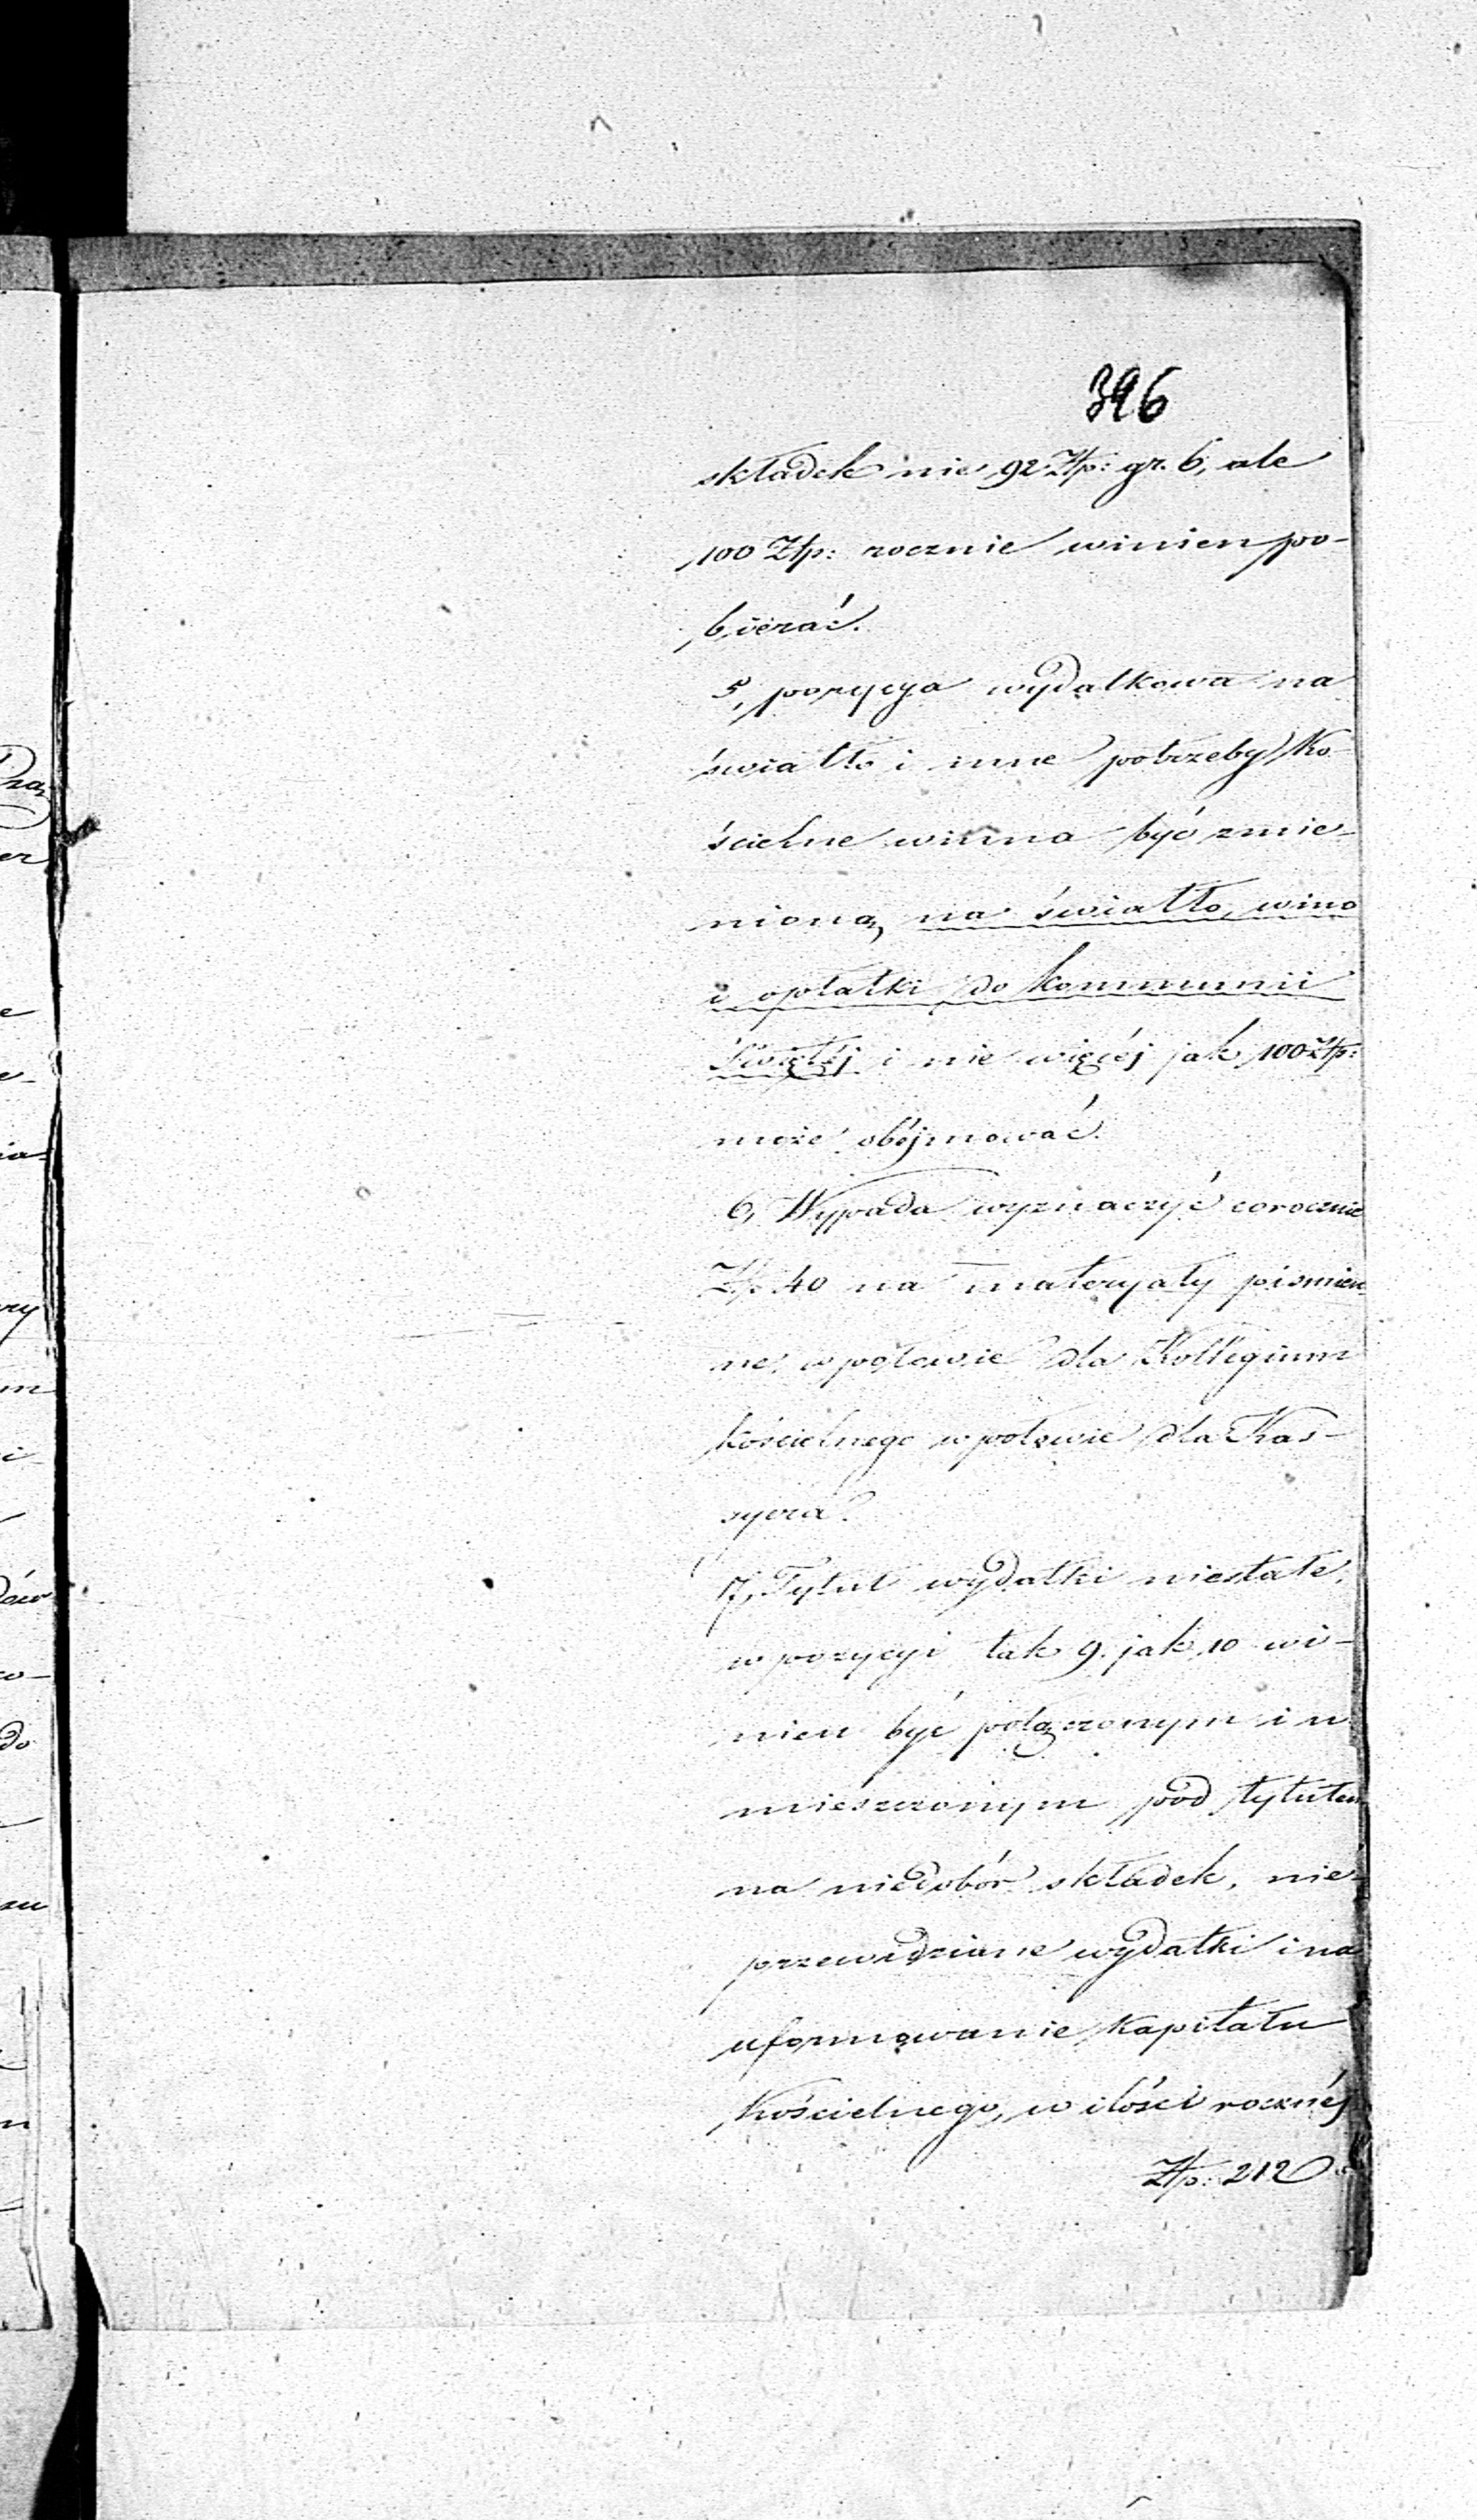 396
składek nie 92 Złp: gr. 6, ale
100 Złp: rocznie winien po-
bierać.
5, pozycya wydatkowa na
światło i inne potrzeby Ko-
ścielne winna być zmie-
nioną, na światło, wino
i opłatki do kommunii
Świętéj i nie więcéj jak 100 Złp:
może obéjmować.
6, Wypada wyznaczyć corocznie
Złp. 40 na materyały piśmien-
ne, w połowie dla Kollegium
kościelnego w połowie dla Kas-
syera.
7, Tytuł wydatki niestałe,
w pozycyi tak 9. jak 10 wi-
nien być połączonym i u
mieszczonym pod tytułem
na niedobór składek, nie-
przewidziane wydatki i na
uformowanie Kapitału
Kościelnego, w ilości rocznéj
Złp: 212